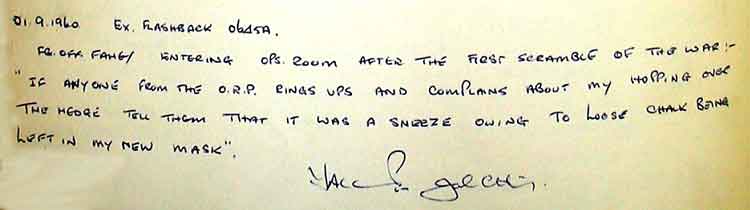 01.9.1960 EX. FLASHBACK 0645A.
FG. OFF. FAHEY ENTERING OPS. ROOM AFTER THE FIRST SCRAMBLE OF THE WAR:-
"IF ANYONE FROM THE O.R.P. RINGS UPS AND COMPLAINS ABOUT MY HOPPING OVER
THE HEDGE TELL THEM THAT IT WAS A SNEEZE OWING TO LOOSE CHALK BEING
LEFT IN MY NEW MASK".